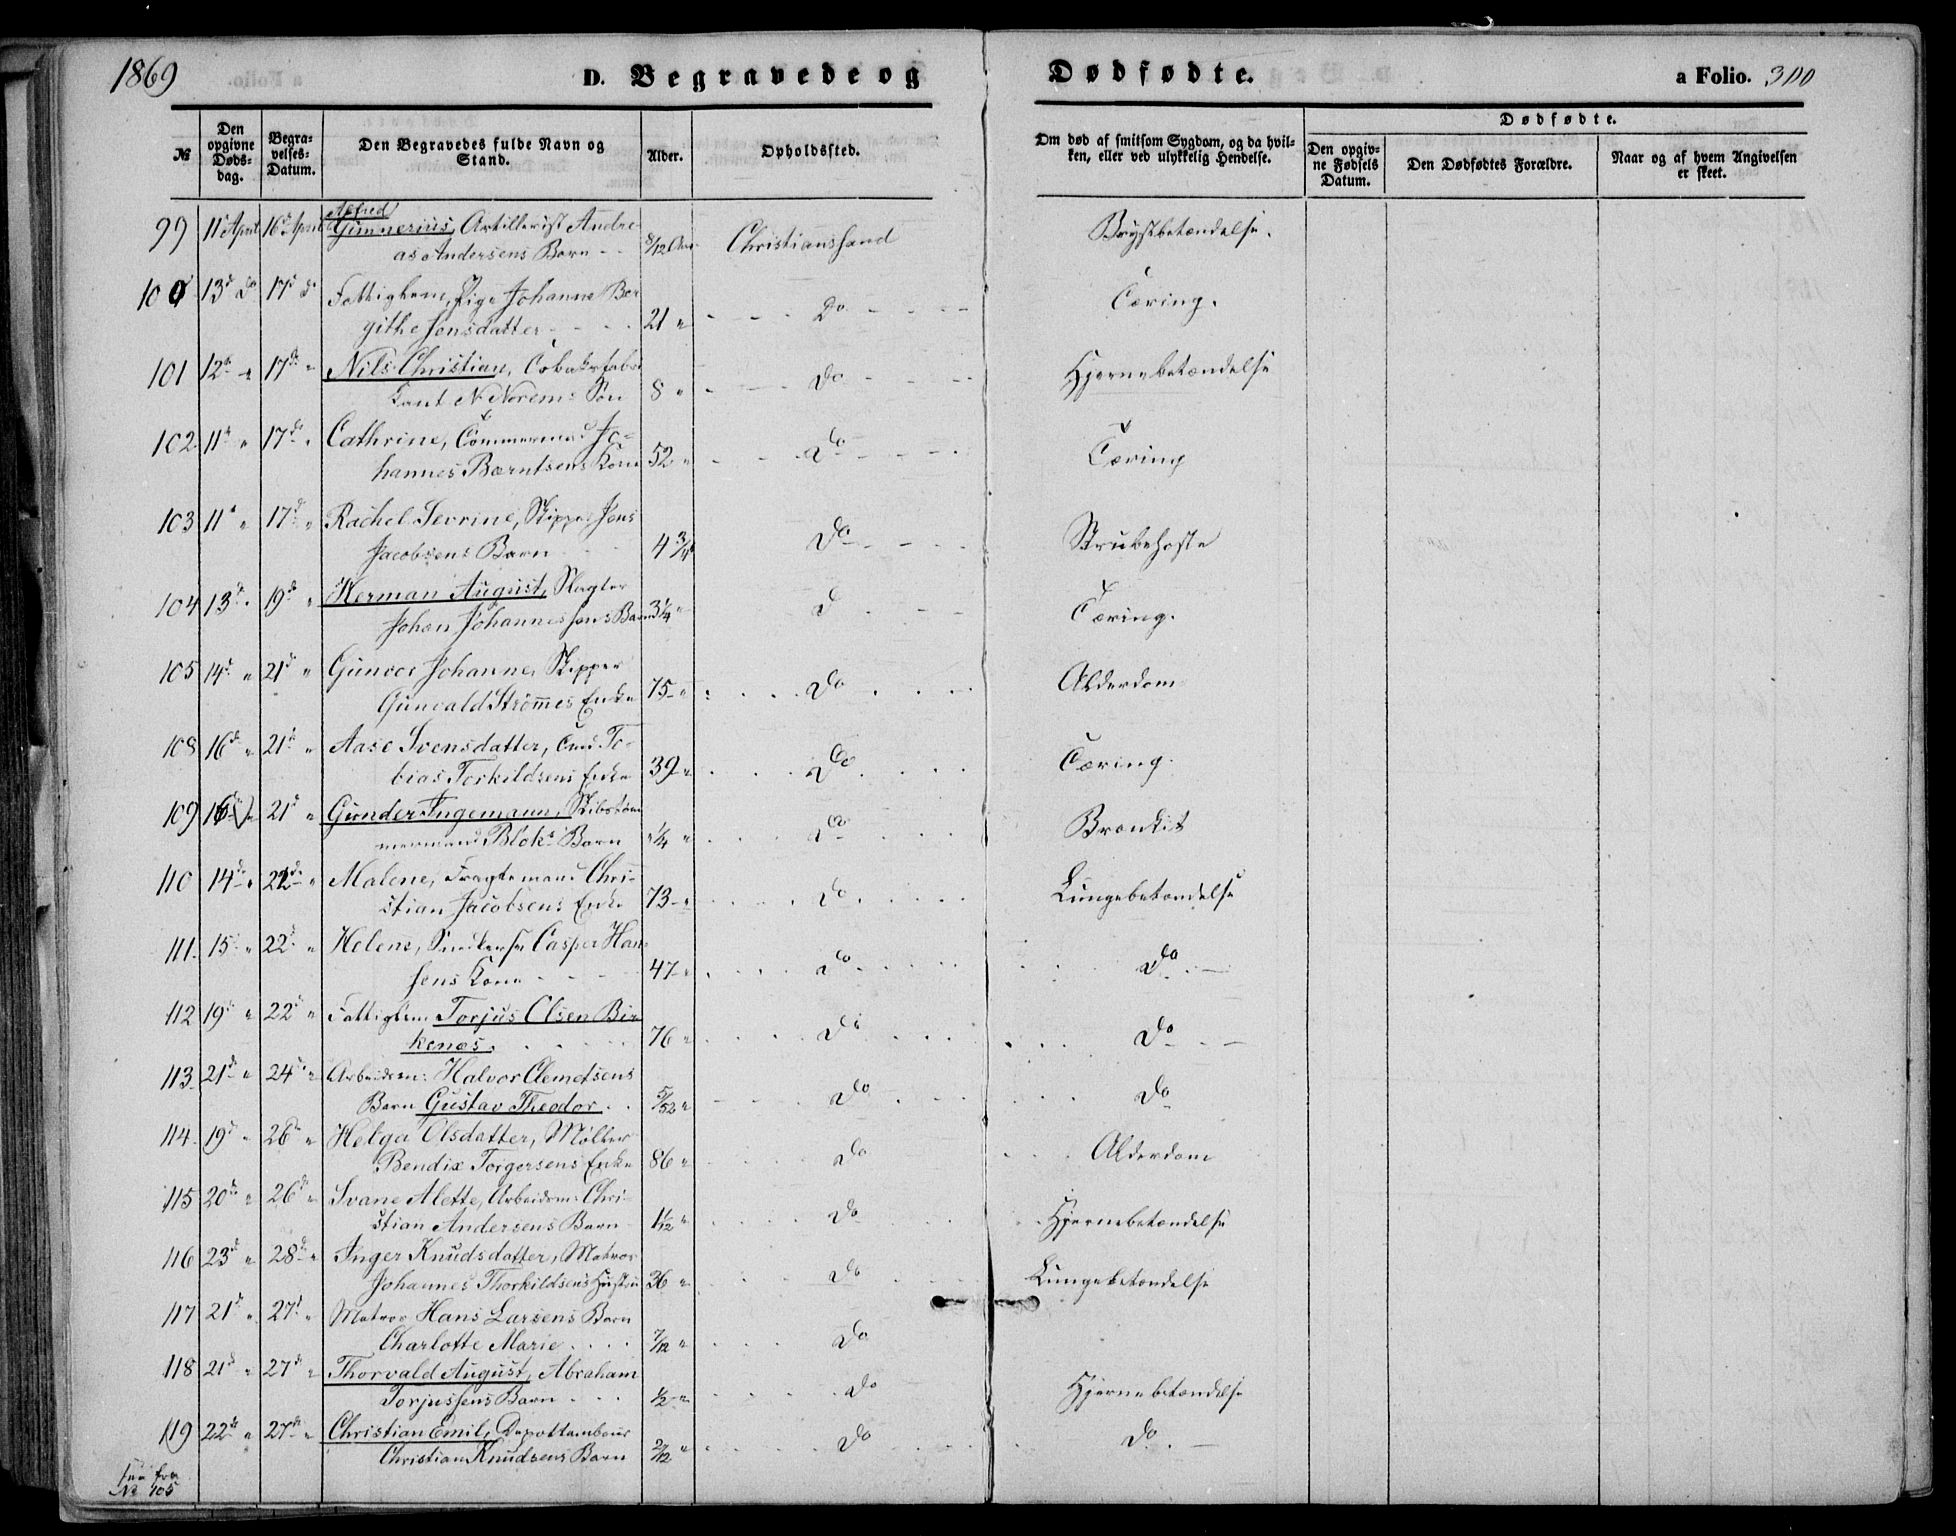 1869
D. Begravede og Dødfødte. a Folio. 300
№
Den opgivne Døds-dag.
Begra-velses-Datum.
Den Begravedes fulde Navn og Stand.
Alder.
Opholdssted.
Om død af smitsom Sygdom, og da hvil-ken, eller ved ulykkelig Hendelse.
Dødfødte.
Den opgiv-ne Fødsels Datum.
Den Dødfødtes Forældre.
Naar og af hvem Angivelsen er skeet.
Alfred
99 11 April 16 April Gunnerius, Artillerist Andre-
as Andersens Barn 8/12 Christianssand Brystbetændelse.
100 13d Do 17d Do Fattiglem, Pige Johanne Ber-
githe Jensdatter 21 " Do Tæring.
101 12te " 17de " Nils Christian, Tobaksfabri
kant N Norems Søn 8 " Do Hjernebetændelse
102 11te " 17de " Cathrine, Tømmermd Jo-
hannes Berntsens Kone 52 " Do Tæring
103 11te " 17de " Rachel Sevrine, Skipper Jens
Jacobsens Barn 4 3/4 Do Strubehoste
104 13de " 19de " Herman August, Slagter
Johan Johannessens Barn 3 1/4 " D Tæring.
105 14d " 21d " Gunvor Johanne, Skipper
Gunvald Strømmes Enke 75 " Do Alderdom
108 16d " 21d " Aase Svensdatter, To-
bias Torkildsens Enke 39 " Do Tæring.
109 16 " 21d " Gunder Ingemann, Skibstøm
mermand Bloks Barn 1/4 " Do Bronkit
110 14de " 22de " Malene, Fragtemand Chri-
stian Jacobsens Enke 73 " Do Lungebetændelse
111. 15 " 22d " Helene, Snedkersv Casper Han-
sens Kone 47 " Do Do
112 19d " 22d " Fattiglem Torjus Olsen Bir-
kenæs. 76 " Do Do
113. 21d " 24d " Arbeidsm: Halvor Clemetsens
Barn Gustav Theodor 5/52 " Do Do
114. 19d " 26d " Helga Olsdatter, Møller
Bendix Torgersens Enke 86 " Do Alderdom
115 20de " 26de " Svane Alette, Arbeidsm: Chri-
stian Andersens Barn 1 1/12 " Do Hjernebetændelse
116 23d " 28de " Inger Knudsdatter, Matros
Johannes Thorkildsens Hustru 36 " Do Lungebetændelse
117 21d " 27d " Matros Hans Larsens Barn
Charlotte Marie 7/12 " Do
118 21d " 27de " Thorvald August, Abraham
Torjussens Barn 1/2 " Do Hjernebetændelse
119 22de " 27de " Christian Emil, Depottambour
Christian Knudsens Barn 2/12 " Do Do
fra
No 105